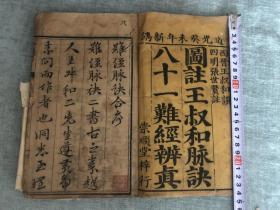 道光癸未年新鐫
西晉王叔和著
四明張世賢註
圖註王叔和脉訣
八十一難經辨真
崇順堂梓行
難經脉訣合序
難經脉訣二書古之秦越
人王叔和二先生遵素
素問而作者也同忠